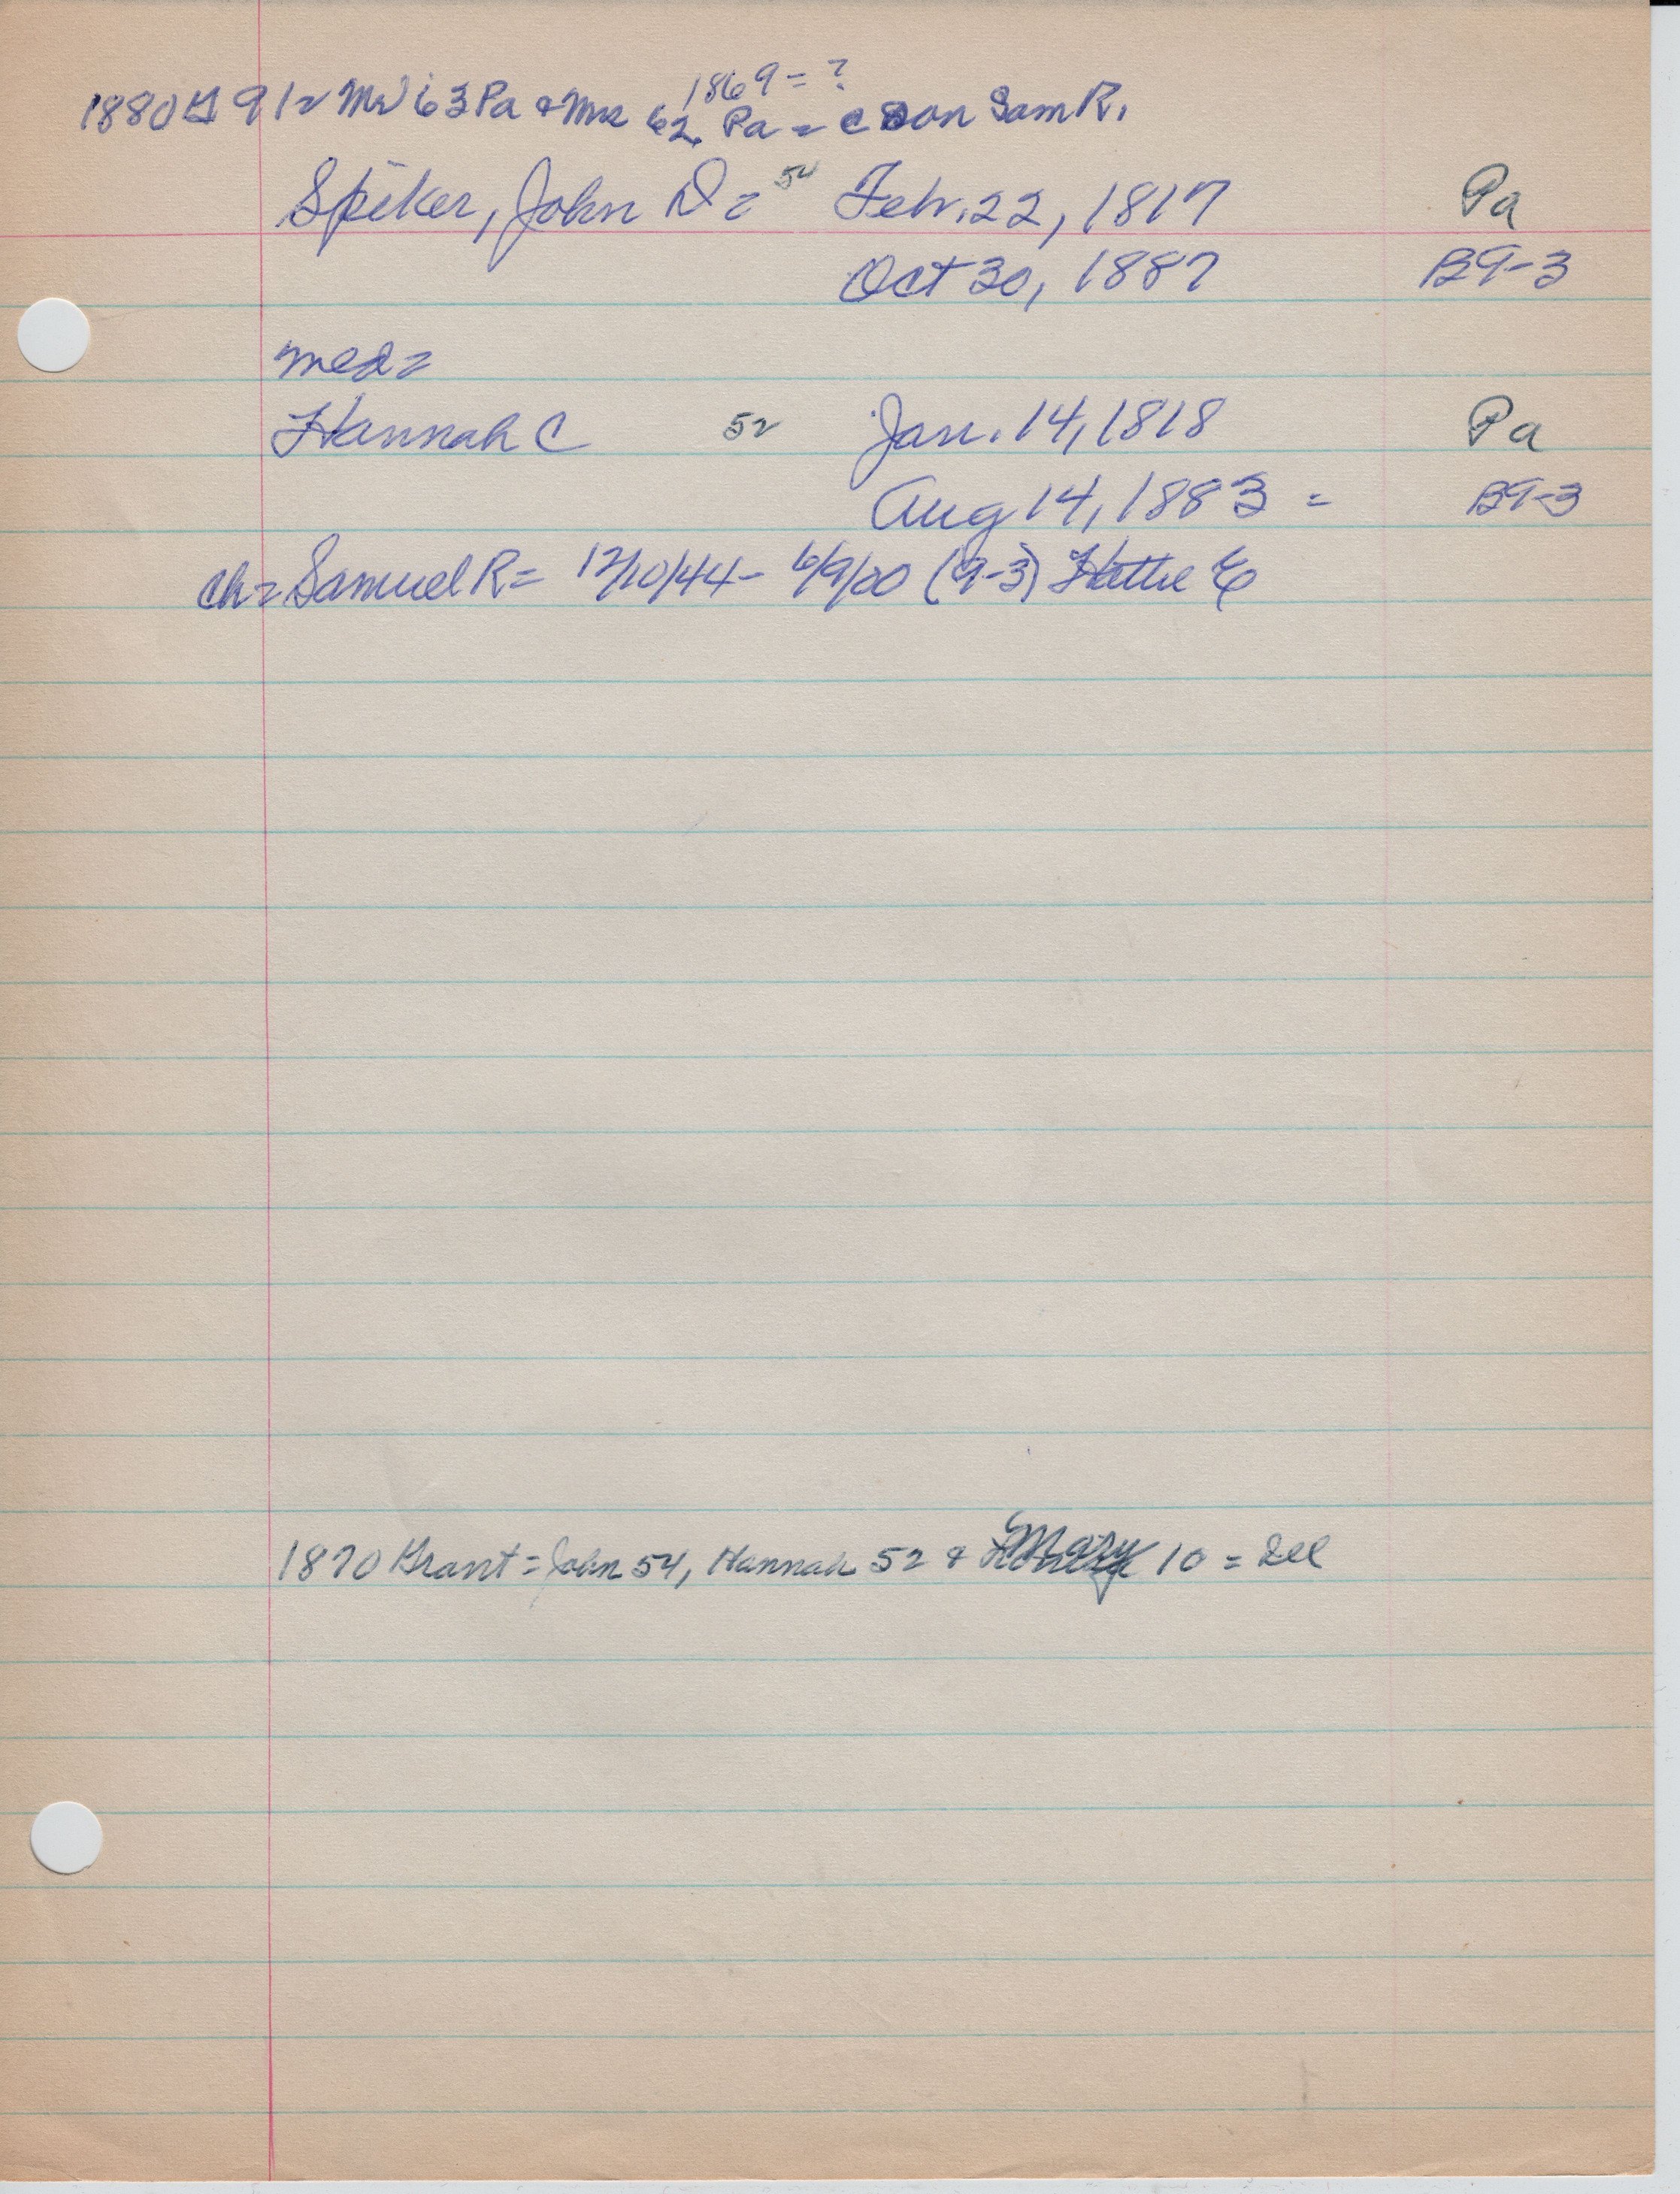 1869 = ?
1880 G 912 Mr 63 Pa & Mrs 62 Pa = c son Sam R.
Spiker, John D = 54 Feb. 22, 1817 Pa
Oct 30, 1887 B9-3
med =
Hannah C 52 Jan. 14, 1818 Pa
Aug 14, 1883 = B9-3
ch = Samuel R = 12/10/44 - 6/9/20 (9-3) Hattie E
1870 Grant = John 54, Hannah 52 & Mary 10 = Ill